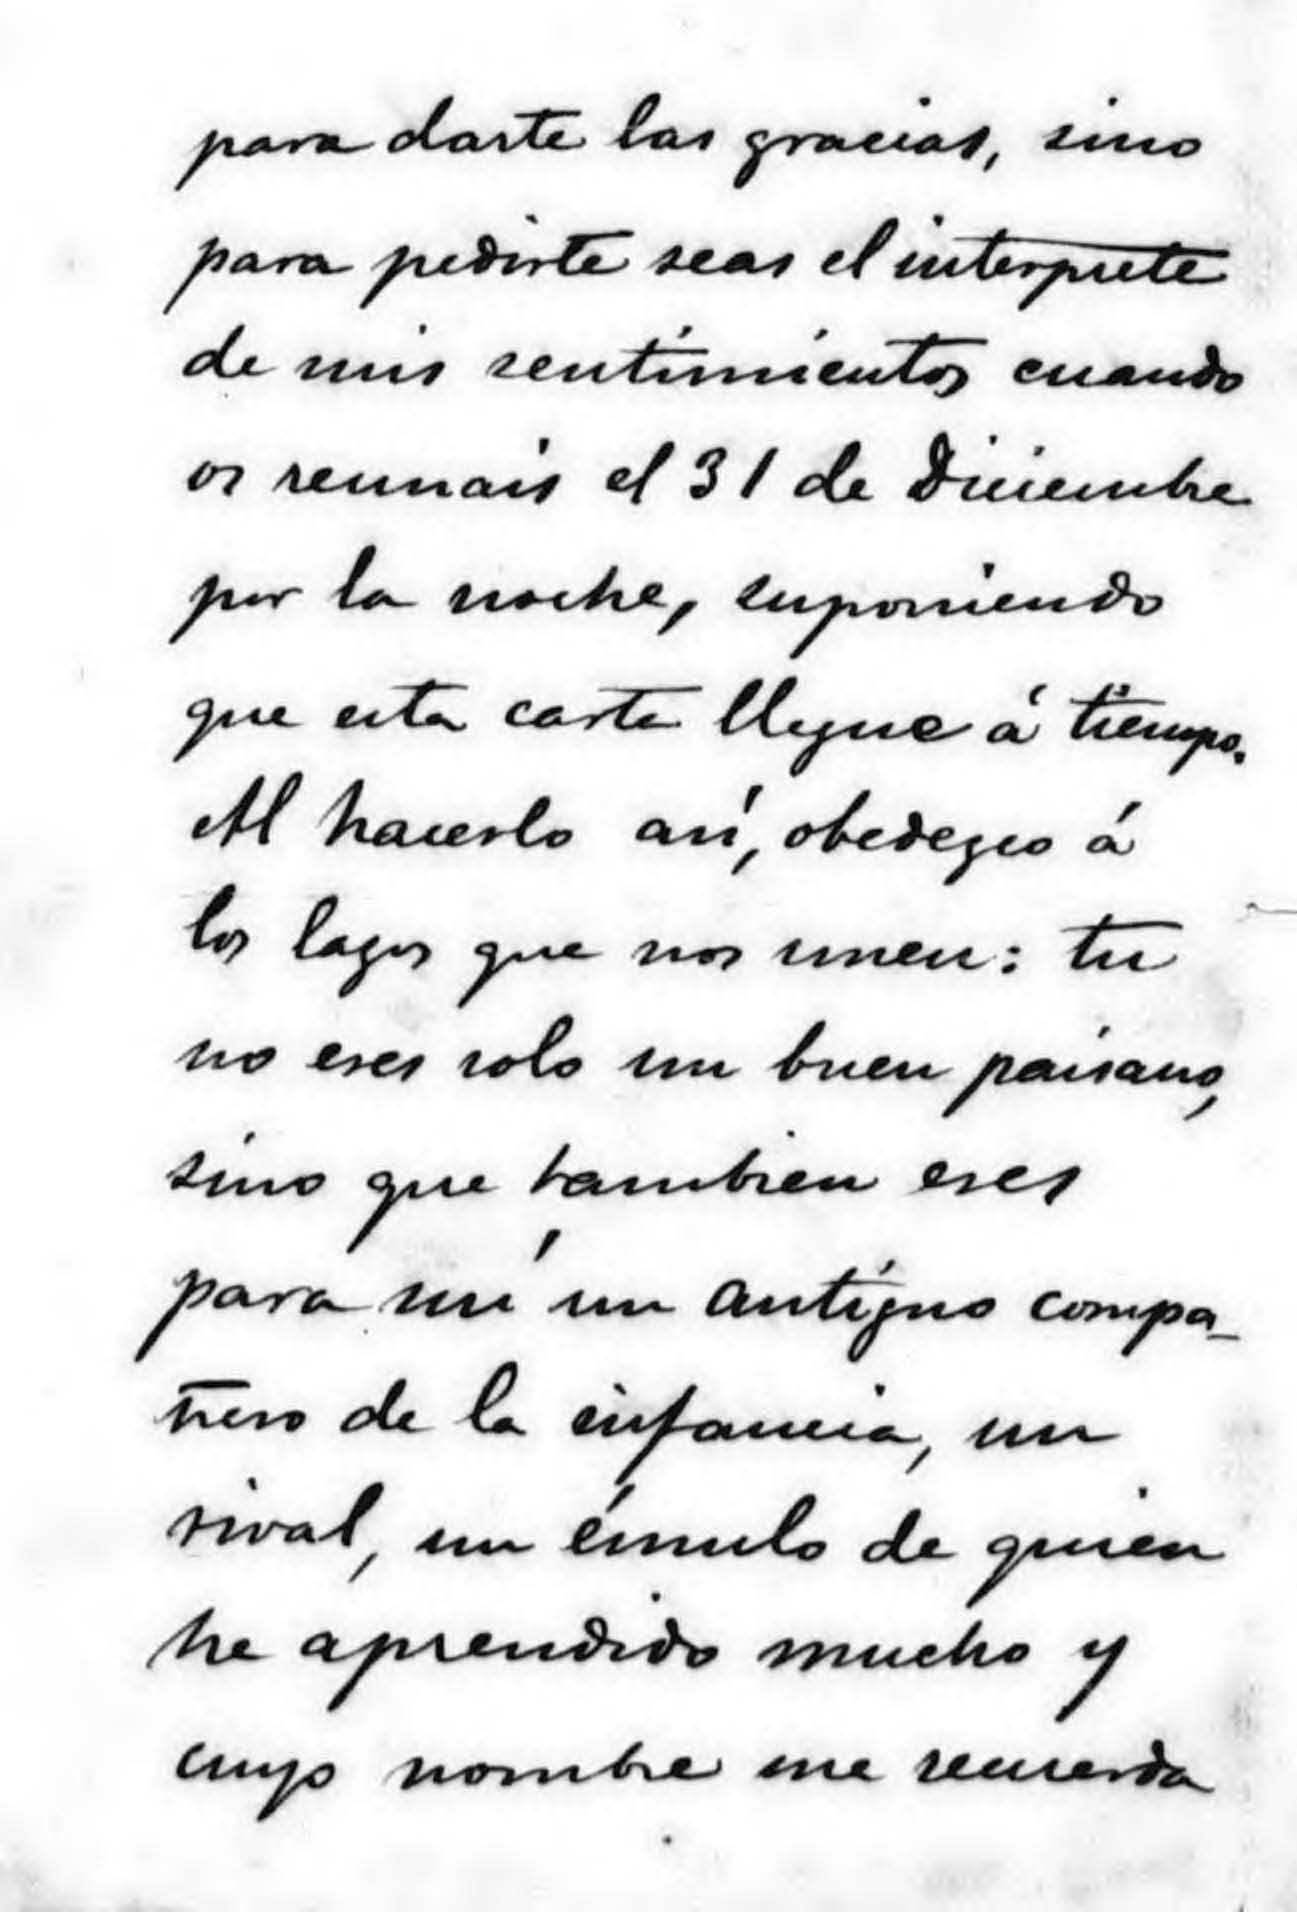 para darte las gracias, sino
para pedirte seas el interprete
de mis sentimientos cuando
os reunais el 31 de Diciembre
por la noche, suponiendo
que esta carta llegue á tiempo.
Al hacerlo así, obedezco á
los lazos que nos unen: tu
no eres solo un buen paisano,
sino que tambien eres
para mí un antiguo compa-
ñero de la infancia, un
rival, un émulo de quien
he aprendido mucho y
cuyo nombre me recuerda